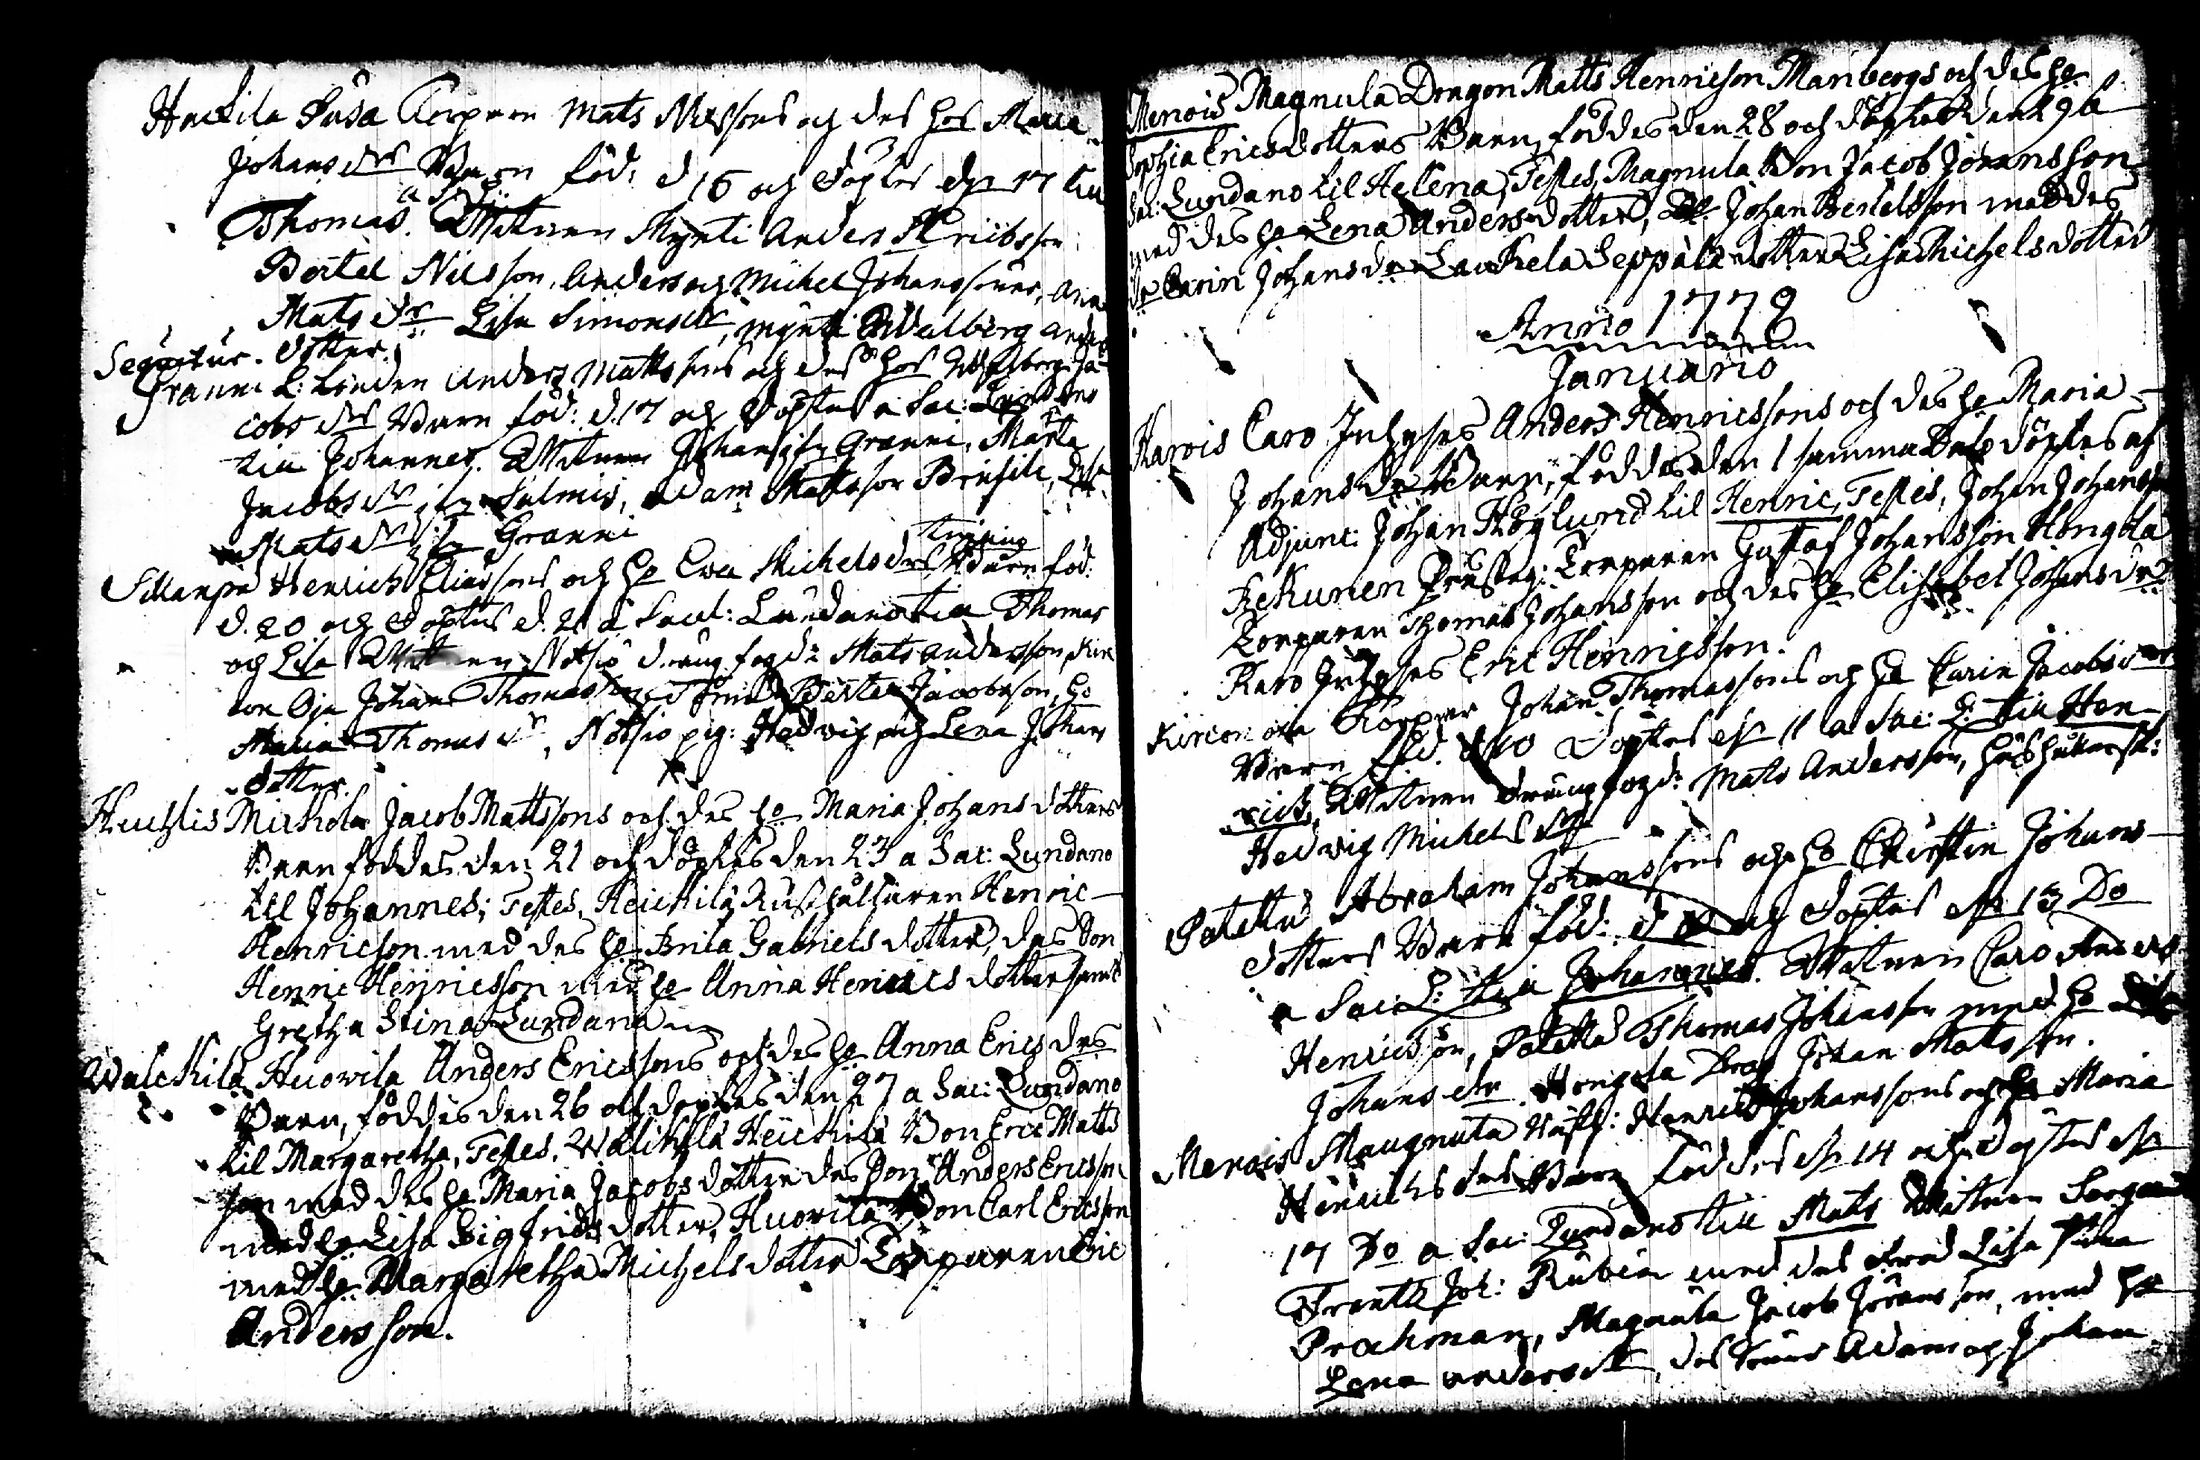 Heickila Susa Torparn Mats Nilssons och des hos Maria
Johans dors Barn föd: d 16 och döptes den 17 till
Thomas. Witnen Mynti Anders Henricsson
Bertel Nilsson, Anders och Michel Johanssoner, Anna
Mats dr Lisa Simonsdr, Mynti Walberg Anders
Sequitur. dotter.
Pranni L: Linden Anders Mattssons och des hos Walberg Ja-
cobs drs Barn föd: d. 17 och döptes a Sac: Lundano
till Johannes. Witnen Johan Granni, Maria
Jacobs dr Salmis, Adam Mattsson
Mats dr Granni
tvining
Sillanpä Henrich Eliassons och ho Eva Michels drs Barn föd:
d. 20 och döptes d. 21 a Sacel: Lundano till Thomas
och Lisa Witnen Notsiö dreng fogd: Mats Andersson, Kir
con Oja Johan Thomasson, Bertel Jacobsson, ho
Maria Thomas dr, Notsiö pig: Hedvig och Lena Johans
dotter.
Heickis Mickola Jacob Mattssons och des ho Maria Johans dotters
Barn föddes den 21 och döptes den 23 a Sac: Lundano
till Johannes; Testes, Heickilä Rusthållaren Henric
Henricson med des ho Brita Gabriels dotter, das Son
Henric Henricsson med ho Anna Henrics dotter samt
Gretha Stina Lundana
Walckila Huovila Anders Ericssons och des ho Anna Erics drs
Barn, föddes den 26 och döptes den 27 a Sac: Lundano
til Margaretha, Testes, Walikylä Heickilä Bon Eric Matts
son med des ho Maria Jacobs dotter des Son Anders Ericsson
med ho Lisa Sigfrids dotter, Huovila Bon Carl Ericsson
med ho Margaretha Michels dotter Torparen Eric
Andersson.
Menois Magnula Dragon Matts Henricson Manbergs och des ho
Sophia Ericsdotters Barn, föddes den 28 och döptes den 29 a
Sac: Lundano til Helena, Testes, Magnula Bon Jacob Johansson
med des ho Lena Anders dotter, Johan Bertelsson med des
Carin Johans dr Laukela Seppälä dotter Lisa Michels dotter
Anno 1779
Januario
Karois Caro Inhyses Anders Henricssons och des ho Maria
Johans dr Barn, föddes den 1 samma Dato döptes af
Adjunc: Johan Höglund til Henric, Testes, Johan Johansson
Torparen Gustaf Johansson Hongola
Torparen Thomas Johansson och des ho Elisabet Johansdr
Karo Inhyses Eric Henricsson.
Kircon oja Torpar Johan Thomassons och ho Carin Jacobs drs
Barn föd. d 10 döptes d 11 a Sac: L: till Hen-
rich, Witnen dreng fogd: Mats Andersson, hushållersk:
Hedvig Michels dr
Patetta Abraham Johanssons och ho Christin Johans
dotters Barn föd: d 10 och döptes den 13 Do
a Sac: L: till Johannes. Witnen Caro Anders
Henricsson, Patetta Thomas Johansson med ho Lisa
Johans dr Hongola Drag Johan Matsson.
Menois Maugnula Henric Johanssons och ho Maria
Henrichs drs Barn föddes den 14 och döptes den
17 Do a Sac: Lundano till Mats Witnen Sergeant
Joh: Rubin med des Fru Lisa Stina
Prochman, Magnula Jacob Jöransson, med ho
Lena Anders dr, des Söner Adam och Johan